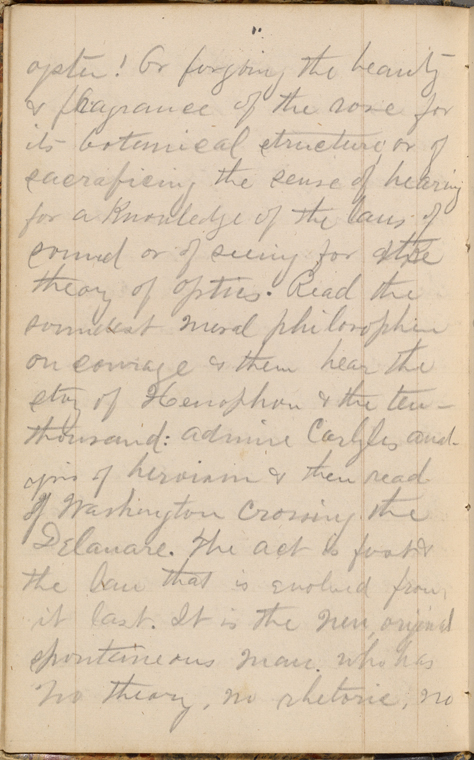 oyster! Or forgoing the beauty
& fragrance of the rose for
its botanical structure, or of
sacraficing the sense of hearing
for a knowledge of the laws of
sound or of seeing for the
theory of optics. Read the
soundest moral philosopher
on courage & then hear the
story of Xenophon & the ten-
thousand: admire Carlyles anal-
ysis of heroism & then read
of Washington Crossing the
Delaware. The act is first &
the law that is evolved from
it last. It is the new, original
spontaineous man, who has
no theory, no rhetoric, no